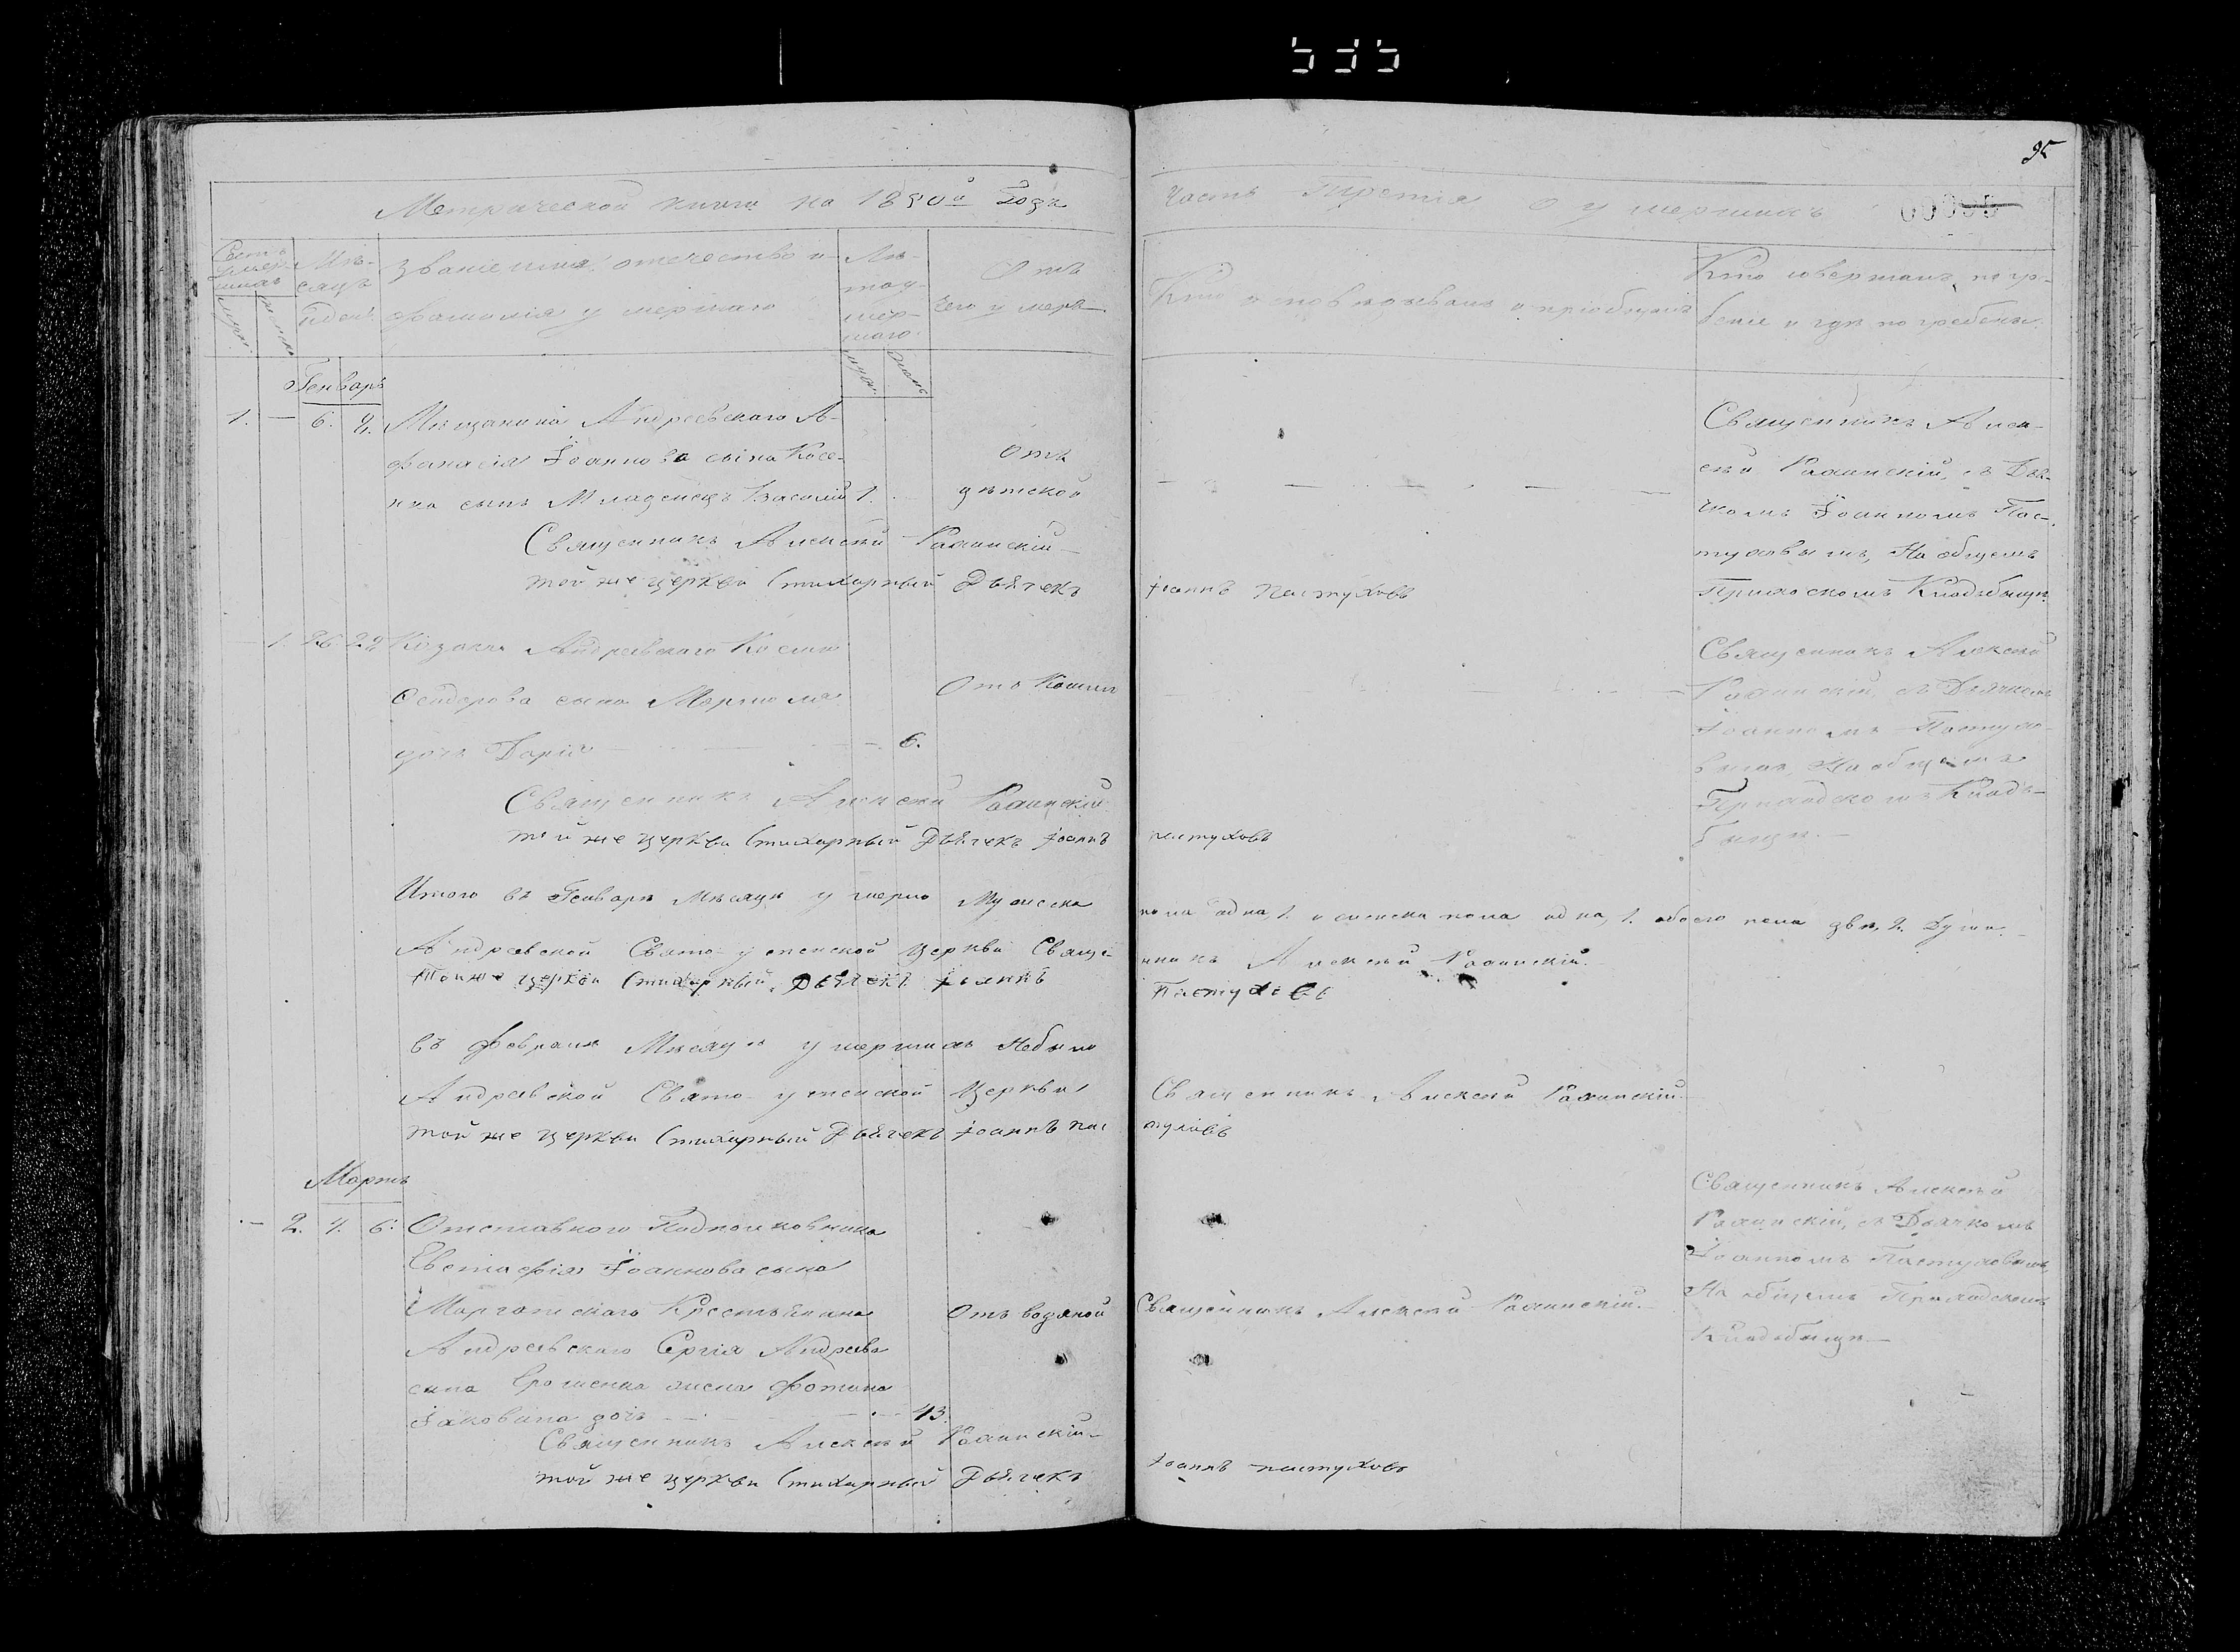 535
95
Метрической книги на 1850й Годъ
Часть Третія о умершихъ
Счетъ умершихъ
Мѣсяцъ и день
Званіе имя, отечество и фамилія умершаго
Лѣта умершаго
Отъ чего умеръ
Кто исповѣдывалъ и пріобщалъ
Кто совершалъ погребеніе и гдѣ погребены
муж. женс.
Генварь
1. — 6. 8. Мѣщанина Андреевскаго А-
фанасія Іоаннова сына Косе-
нка сынъ Младенецъ Василій 1.
Отъ
дѣтской
Священникъ Алек-
сѣй, съ Дья-
чкомъ Іоанномъ Пас-
туховымъ, На общемъ
Приходскомъ Кладбищѣ
Священникъ Алексѣй
той же церкви Стихарный Дьячекъ Іоаннъ Пастуховъ
— 1. 26 28 Козака Андреевскаго Космы
сына
дочь Дарія — — — 6.
Отъ Кашля
Священникъ Алексѣй
съ Дьячкомъ
Іоанномъ Пастухо-
вымъ, На общемъ
Приходскомъ Клад-
бищѣ. —
Священникъ Алексѣй
той же церкви Стихарный Дьячекъ Іоаннъ Пастуховъ
Итого въ Генварѣ Мѣсяцѣ умерло Мужеска пола одна, 1. и женска пола одна, 1. обоего пола двѣ, 2. Души. —
Андреевской Свято-успенской Церкви Священникъ Алексѣй
Тойже церкви Стихарный Дьячекъ Іоаннъ Пастуховъ
въ Февралѣ Мѣсяцѣ умершихъ Небыло
Андреевской Свято-успенской Церкви Священникъ Алексѣй
той же церкви Стихарный Дьячекъ Іоаннъ Пастуховъ
Мартъ
— 2. 4. 6. Отставного Подполковника
Евстафія Іоаннова сына
Крестьянина
Андреевскаго Сергія Андреева
сына Ерошенка жена Фотина
Іаковлева дочь — — — 43.
Отъ водяной
Священникъ Алексѣй
Священникъ Алексѣй
съ Дьячкомъ
Іоанномъ Пастуховымъ,
На общемъ Приходскомъ
Кладбищѣ —
Священникъ Алексѣй
той же церкви Стихарный Дьячекъ Іоаннъ Пастуховъ